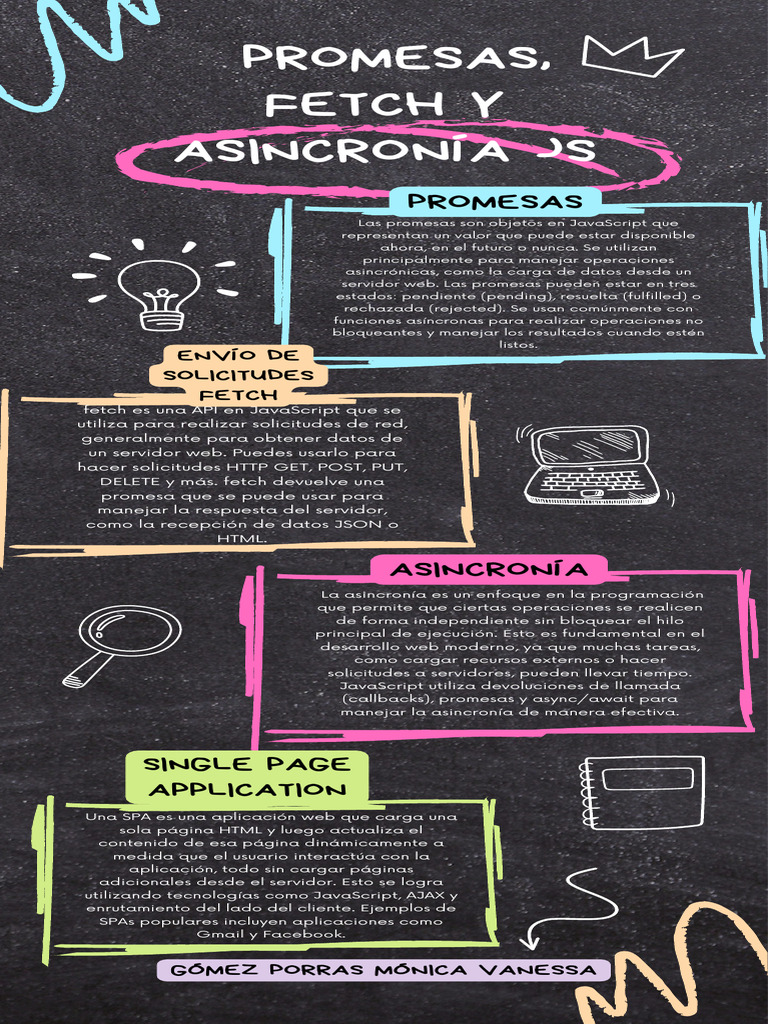 PROMESAS,
FETCH Y
ASINCRONÍA JS
PROMESAS
Las promesas son objetos en JavaScript que
representan un valor que puede estar disponible
ahora, en el futuro o nunca. Se utilizan
principalmente para manejar operaciones
asincrónicas, como la carga de datos desde un
servidor web. Las promesas pueden estar en tres
estados: pendiente (pending), resuelta (fulfilled) o
rechazada (rejected). Se usan comúnmente con
funciones asíncronas para realizar operaciones no
bloqueantes y manejar los resultados cuando estén
listos.
ENVÍO DE
SOLICITUDES
FETCH
fetch es una API en JavaScript que se
utiliza para realizar solicitudes de red,
generalmente para obtener datos de
un servidor web. Puedes usarlo para
hacer solicitudes HTTP GET, POST, PUT,
DELETE y más. fetch devuelve una
promesa que se puede usar para
manejar la respuesta del servidor,
como la recepción de datos JSON o
HTML.
ASINCRONÍA
La asincronía es un enfoque en la programación
que permite que ciertas operaciones se realicen
de forma independiente sin bloquear el hilo
principal de ejecución. Esto es fundamental en el
desarrollo web moderno, ya que muchas tareas,
como cargar recursos externos o hacer
solicitudes a servidores, pueden llevar tiempo.
JavaScript utiliza devoluciones de llamada
(callbacks), promesas y async/await para
manejar la asincronía de manera efectiva.
SINGLE PAGE
APPLICATION
Una SPA es una aplicación web que carga una
sola página HTML y luego actualiza el
contenido de esa página dinámicamente a
medida que el usuario interactúa con la
aplicación, todo sin cargar páginas
adicionales desde el servidor. Esto se logra
utilizando tecnologías como JavaScript, AJAX y
enrutamiento del lado del cliente. Ejemplos de
SPAs populares incluyen aplicaciones como
Gmail y Facebook.
GÓMEZ PORRAS MÓNICA VANESSA